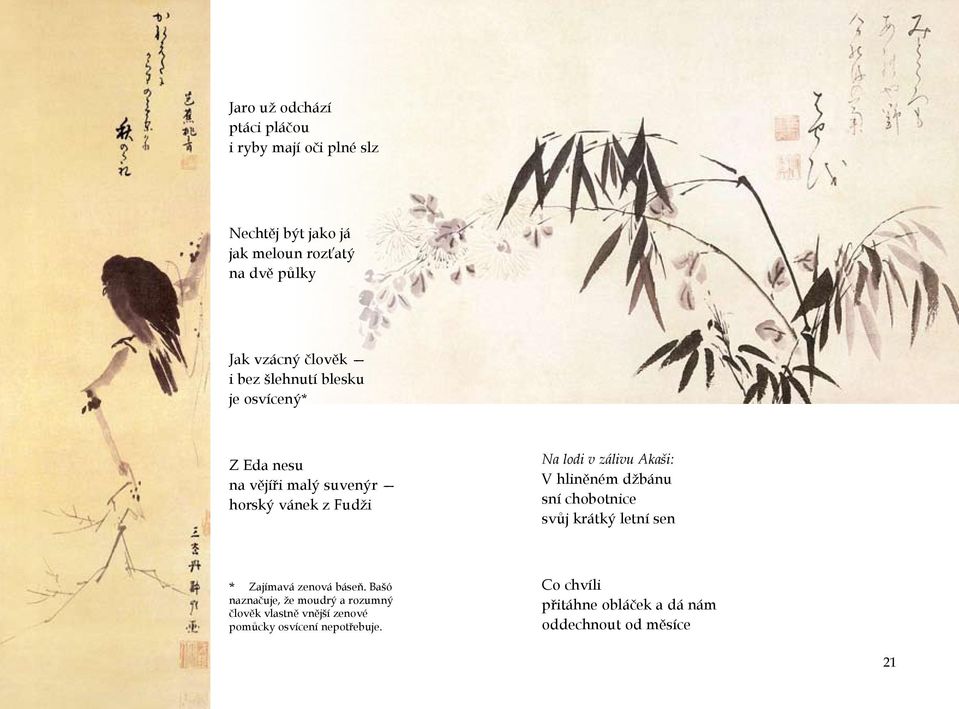 Jaro už odchází
ptáci pláčou
i ryby mají oči plné slz
Nechtěj být jako já
jak meloun rozťatý
na dvě půlky
Jak vzácný člověk —
i bez šlehnutí blesku
je osvícený*
Z Eda nesu
na vějíři malý suvenýr —
horský vánek z Fudži
* Zajímavá zenová báseň. Bašó
naznačuje, že moudrý a rozumný
člověk vlastně vnější zenové
pomůcky osvícení nepotřebuje.
Na lodi v zálivu Akaši:
V hliněném džbánu
sní chobotnice
svůj krátký letní sen
Co chvíli
přitáhne obláček a dá nám
oddechnout od měsíce
21
芭蕉桃青